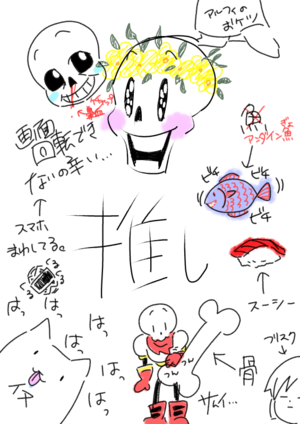 アルフィの
おケツ
ケチャップ
画面
回転でき
ないの辛い…
↑
スマホ
まわしてる。
魚
アンダイン魚
ビチ
ビチ
ビチ
ビチ
推し
スーシー
はっ
はっ
はっ
はっ
はっ
はっ
骨
サムイ…
フリスク